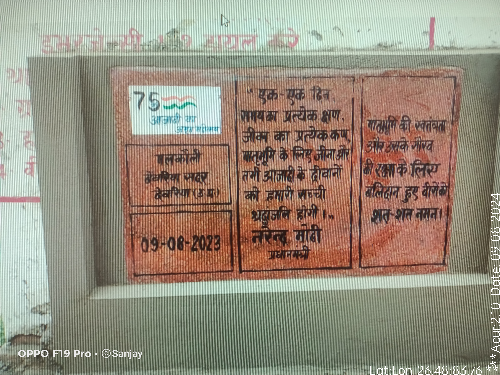 75
आज़ादी का
अमृत महोत्सव
देवरिया सदर
देवरिया (उ.प्र.)
09-08-2023
"एक-एक दिन
समय का प्रत्येक क्षण,
जीवन का प्रत्येक कण
मातृभूमि के लिए जीना और
तभी आजादी के दीवानों
को हमारी सच्ची
श्रद्धांजलि होगी।"
नरेन्द्र मोदी
प्रधानमंत्री
मातृभूमि की स्वतंत्रता
और उसके गौरव
की रक्षा के लिए
बलिदान हुए वीरों को
शत-शत नमन।
OPPO F19 Pro · ©Sanjay
Date: 09.08.2024